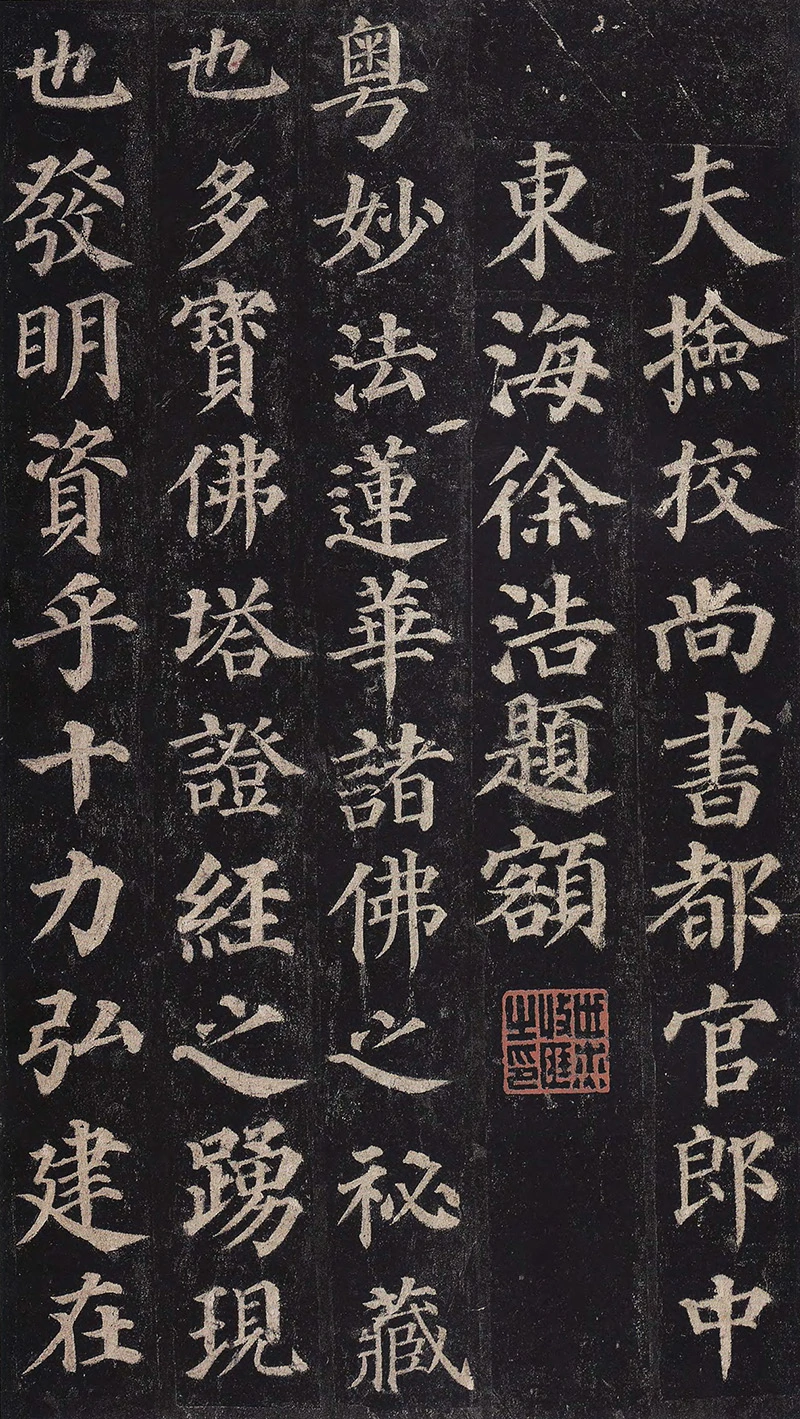 夫撿挍尚書都官郎中
東海徐浩題額
粵妙法蓮華諸佛之祕藏
也多寶佛塔證經之踴現
也發明資乎十力弘建在